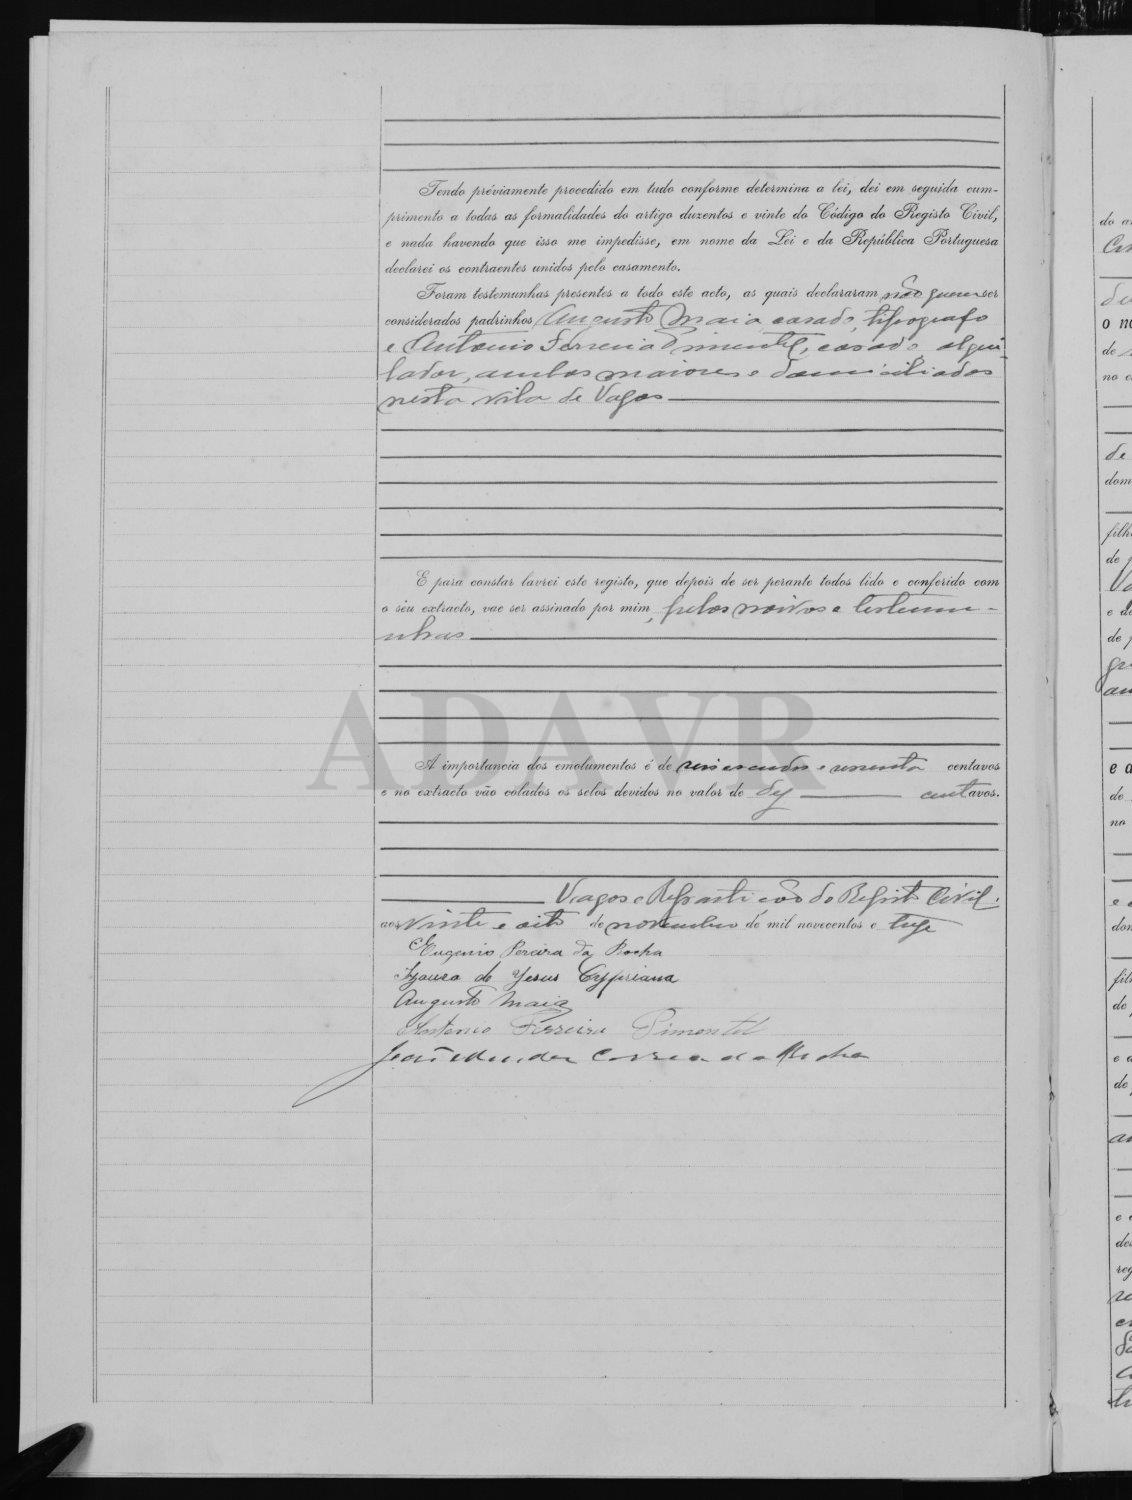 Tendo préviamente procedido em tudo conforme determina a lei, dei em seguida cum-
primento a todas as formalidades do artigo duzentos e vinte do Código do Registo Civil,
e nada havendo que isso me impedisse, em nome da Lei e da República Portuguesa
declarei os contraentes unidos pelo casamento.
Foram testemunhas presentes a todo este acto, as quais declararam não querer ser
considerados padrinhos, Augusto Maia, casado, tipografo
e Antonio Ferreira Pimentel, casado, alqui-
lador, ambos maiores e domiciliados
nesta vila de Vagos
E para constar lavrei este registo, que depois de ser perante todos lido e conferido com
o seu extracto, vae ser assinado por mim, pelos noivos e testemu-
nhas
ADAVR
A importancia dos emolumentos é de escudos e centavos
e no extracto vão colados os selos devidos no valor de dez centavos.
Vagos e Repartição do Registo Civil,
aos vinte e oito de novembro de mil novecentos e treze
Eugenio Pereira da Rocha
de Jesus Cypriana
Augusto Maia
Antonio Ferreira Pimentel
João Mendes Correia da Rocha
do
de
no
de
dom
filh
de
e
de
e a
de
no
e
dom
fil
de
e a
de
e
de
reg